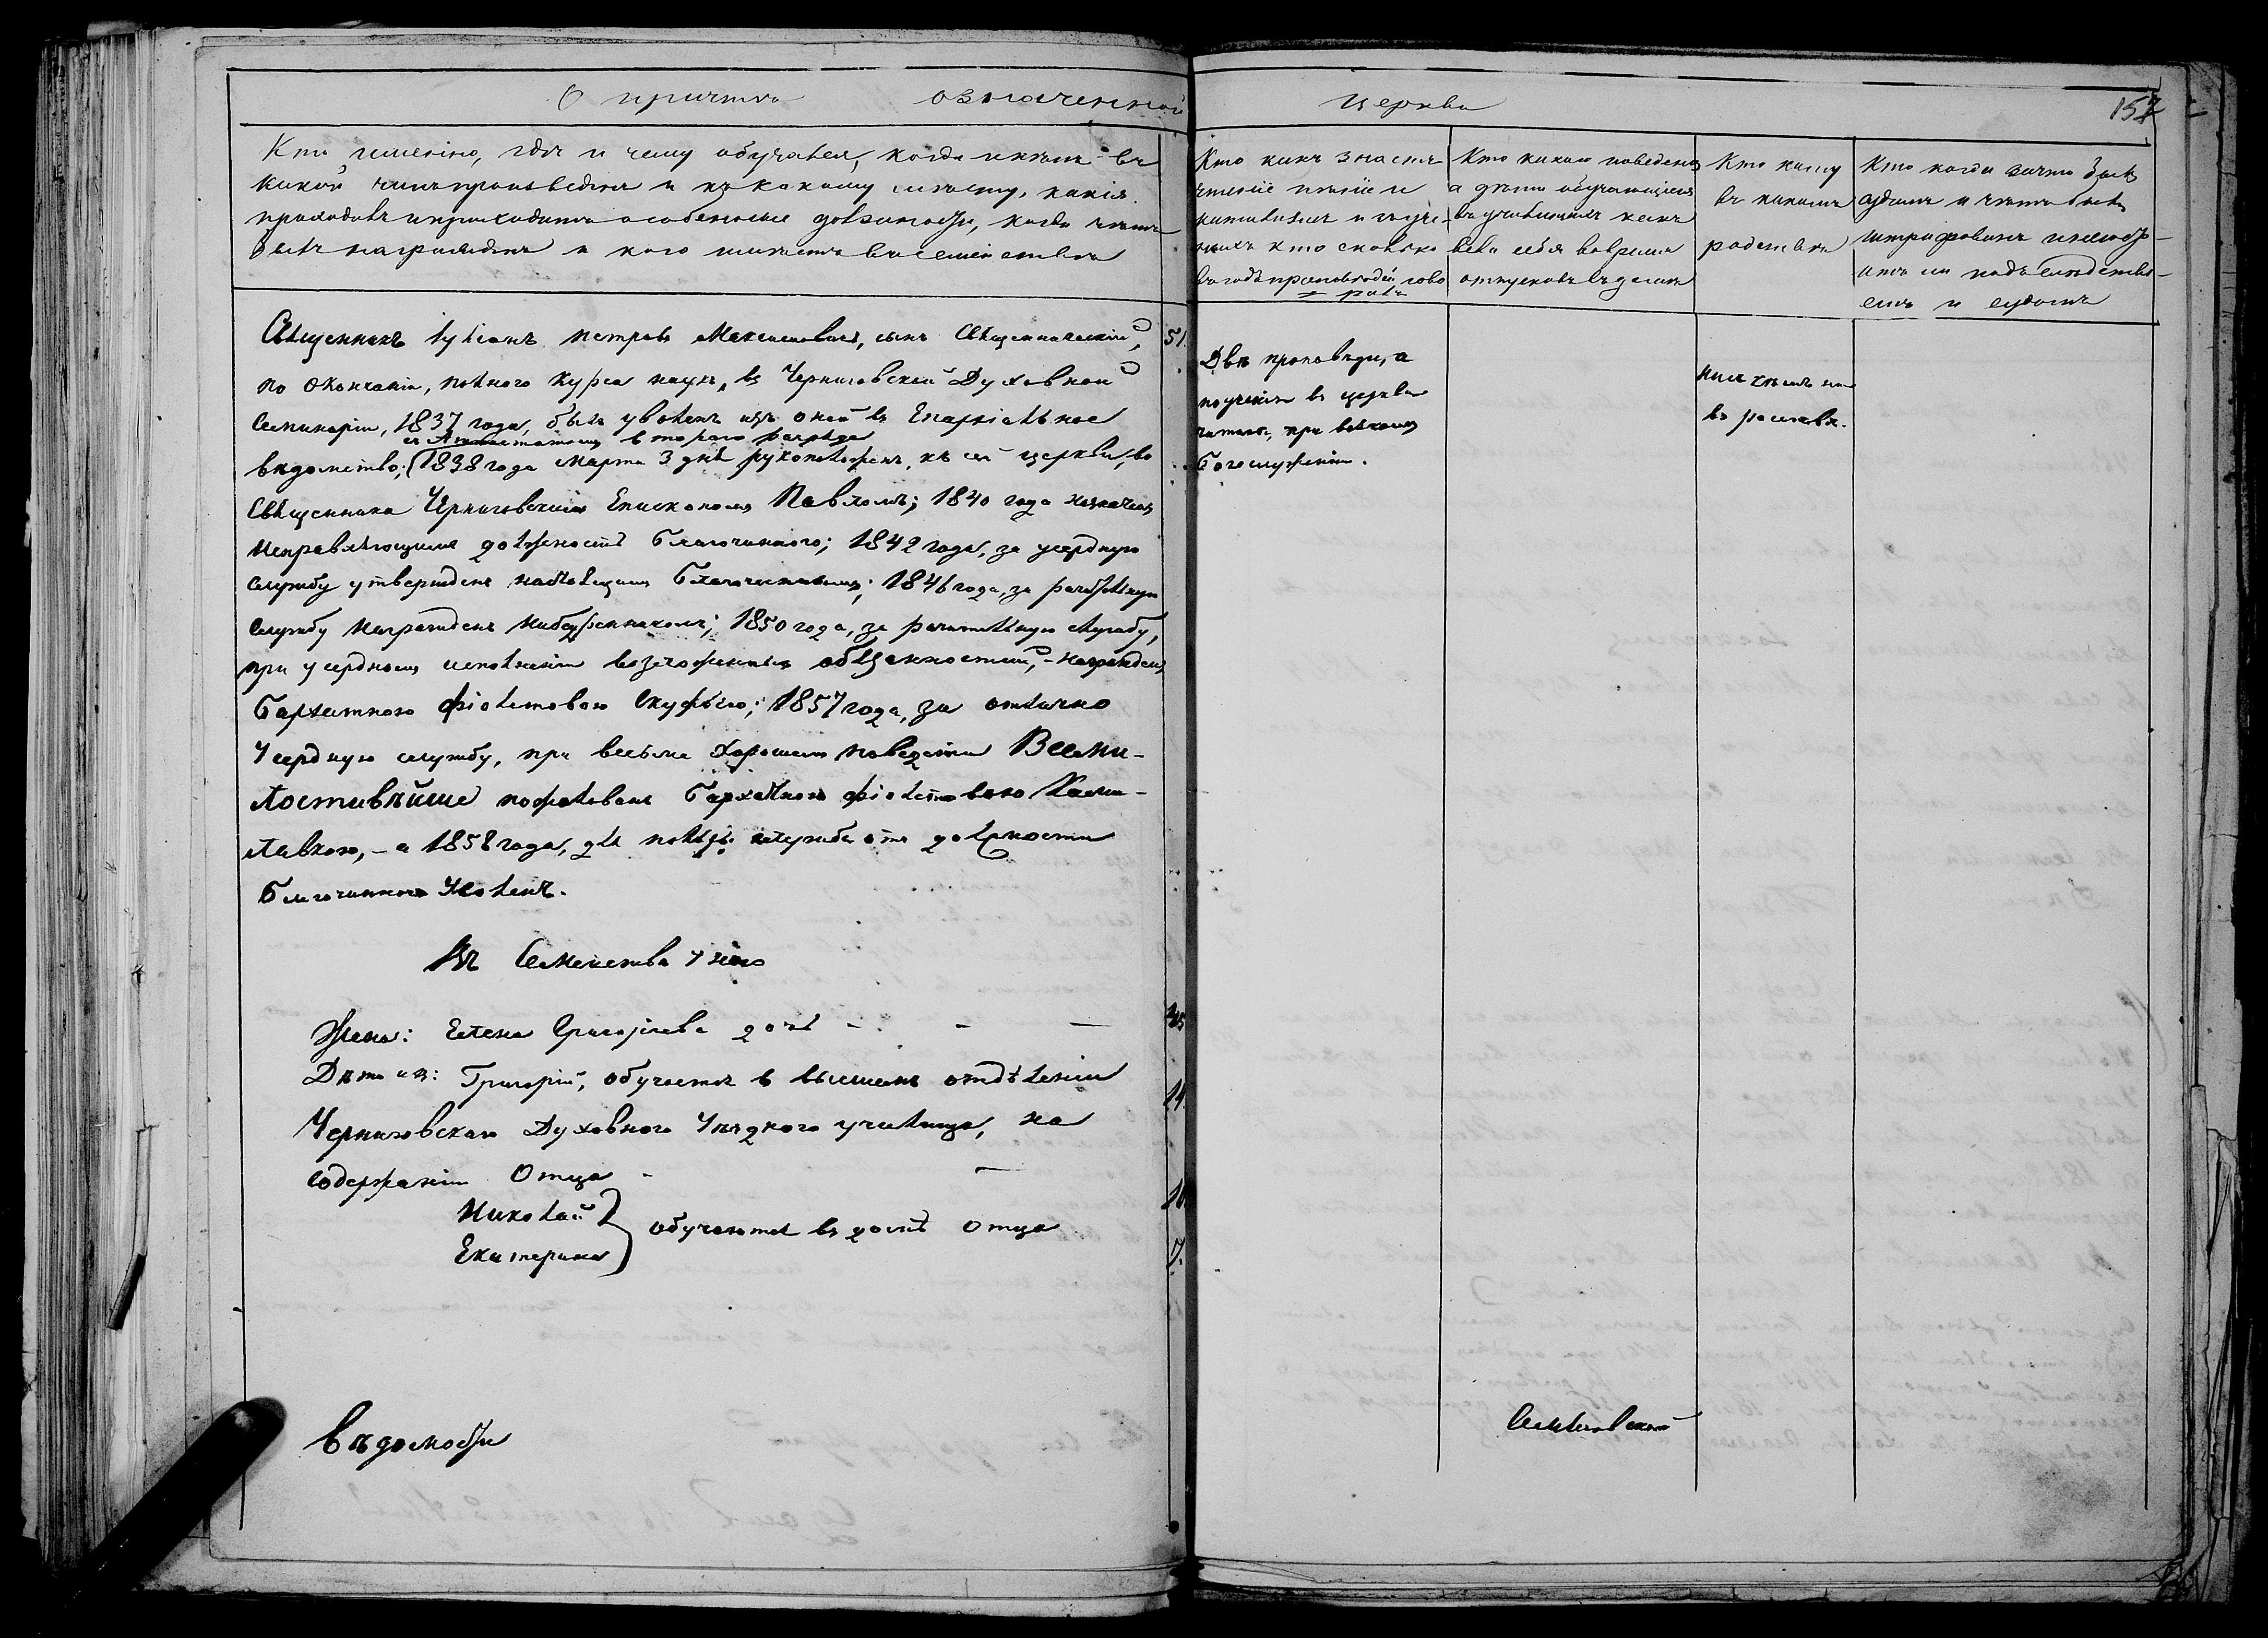 О причтѣ означенной церкви
157
Кто именно, гдѣ и чему обучался, когда и кѣмъ въ
какой чинъ произведенъ и къ какому мѣсту, какія
проходилъ и проходитъ особенныя должности, когда чѣмъ
былъ награжденъ и кого имѣетъ въ семействѣ
Кто какъ знаетъ
чтеніе пѣніе и
катихизисъ и
кто сколько
въ годъ проповѣдей гово
рилъ
Кто какого поведенія
а дѣти обучающіеся
въ училищахъ какъ
вели себя во время
отпусковъ въ домы
Кто кому
въ какомъ
родствѣ
Кто когда за что былъ
судимъ и чѣмъ былъ
штрафованъ и не сос-
итъ ли подъ слѣдстві-
емъ и судомъ
Священникъ Іуліанъ Петровъ Максимовичъ, сынъ Священническій,
51.
по окончаніи, полнаго курса наукъ, въ Черниговской Духовной
Семинаріи, 1837 года, былъ уволенъ изъ оной въ Епархіальное
съ Аттестатомъ втораго разряда
вѣдомство; 1838 года Марта 3 дня рукоположенъ, къ сей церкви, во
Священника Черниговскимъ Епископомъ Павломъ; 1840 года назначенъ
исправляющимъ должность Благочиннаго; 1842 года, за усердную
службу утвержденъ настоящимъ Благочиннымъ; 1846 года, за
службу награжденъ набедренникомъ; 1850 года, за рачительную службу,
при усердномъ исполненіи возложенныхъ обязанностей, - награжденъ
бархатною фіолетовою скуфьею; 1857 года, за отлично
усердную службу, при весьма хорошемъ поведеніи Всеми-
лостивѣйше пожалованъ бархатною фіолетовою Ками-
лавкою, - а 1858 года, для пользы службы отъ должности
Благочиннаго уволенъ.
Двѣ проповѣди, а
поученія въ церкви
читалъ, при всякомъ
Богослуженіи.
Ни съ кѣмъ не
въ родствѣ.
Въ Семействѣ у него
Жена: Елена Григоріева дочь - - -
Дѣти ихъ: Григорій, обучается в высшемъ отдѣленіи
14
Черниговскаго Духовнаго Уѣзднаго училища, на
содержаніи Отца - -
Николай
10
Екатерина
7.
обучаются въ домѣ Отца
Вѣдомости